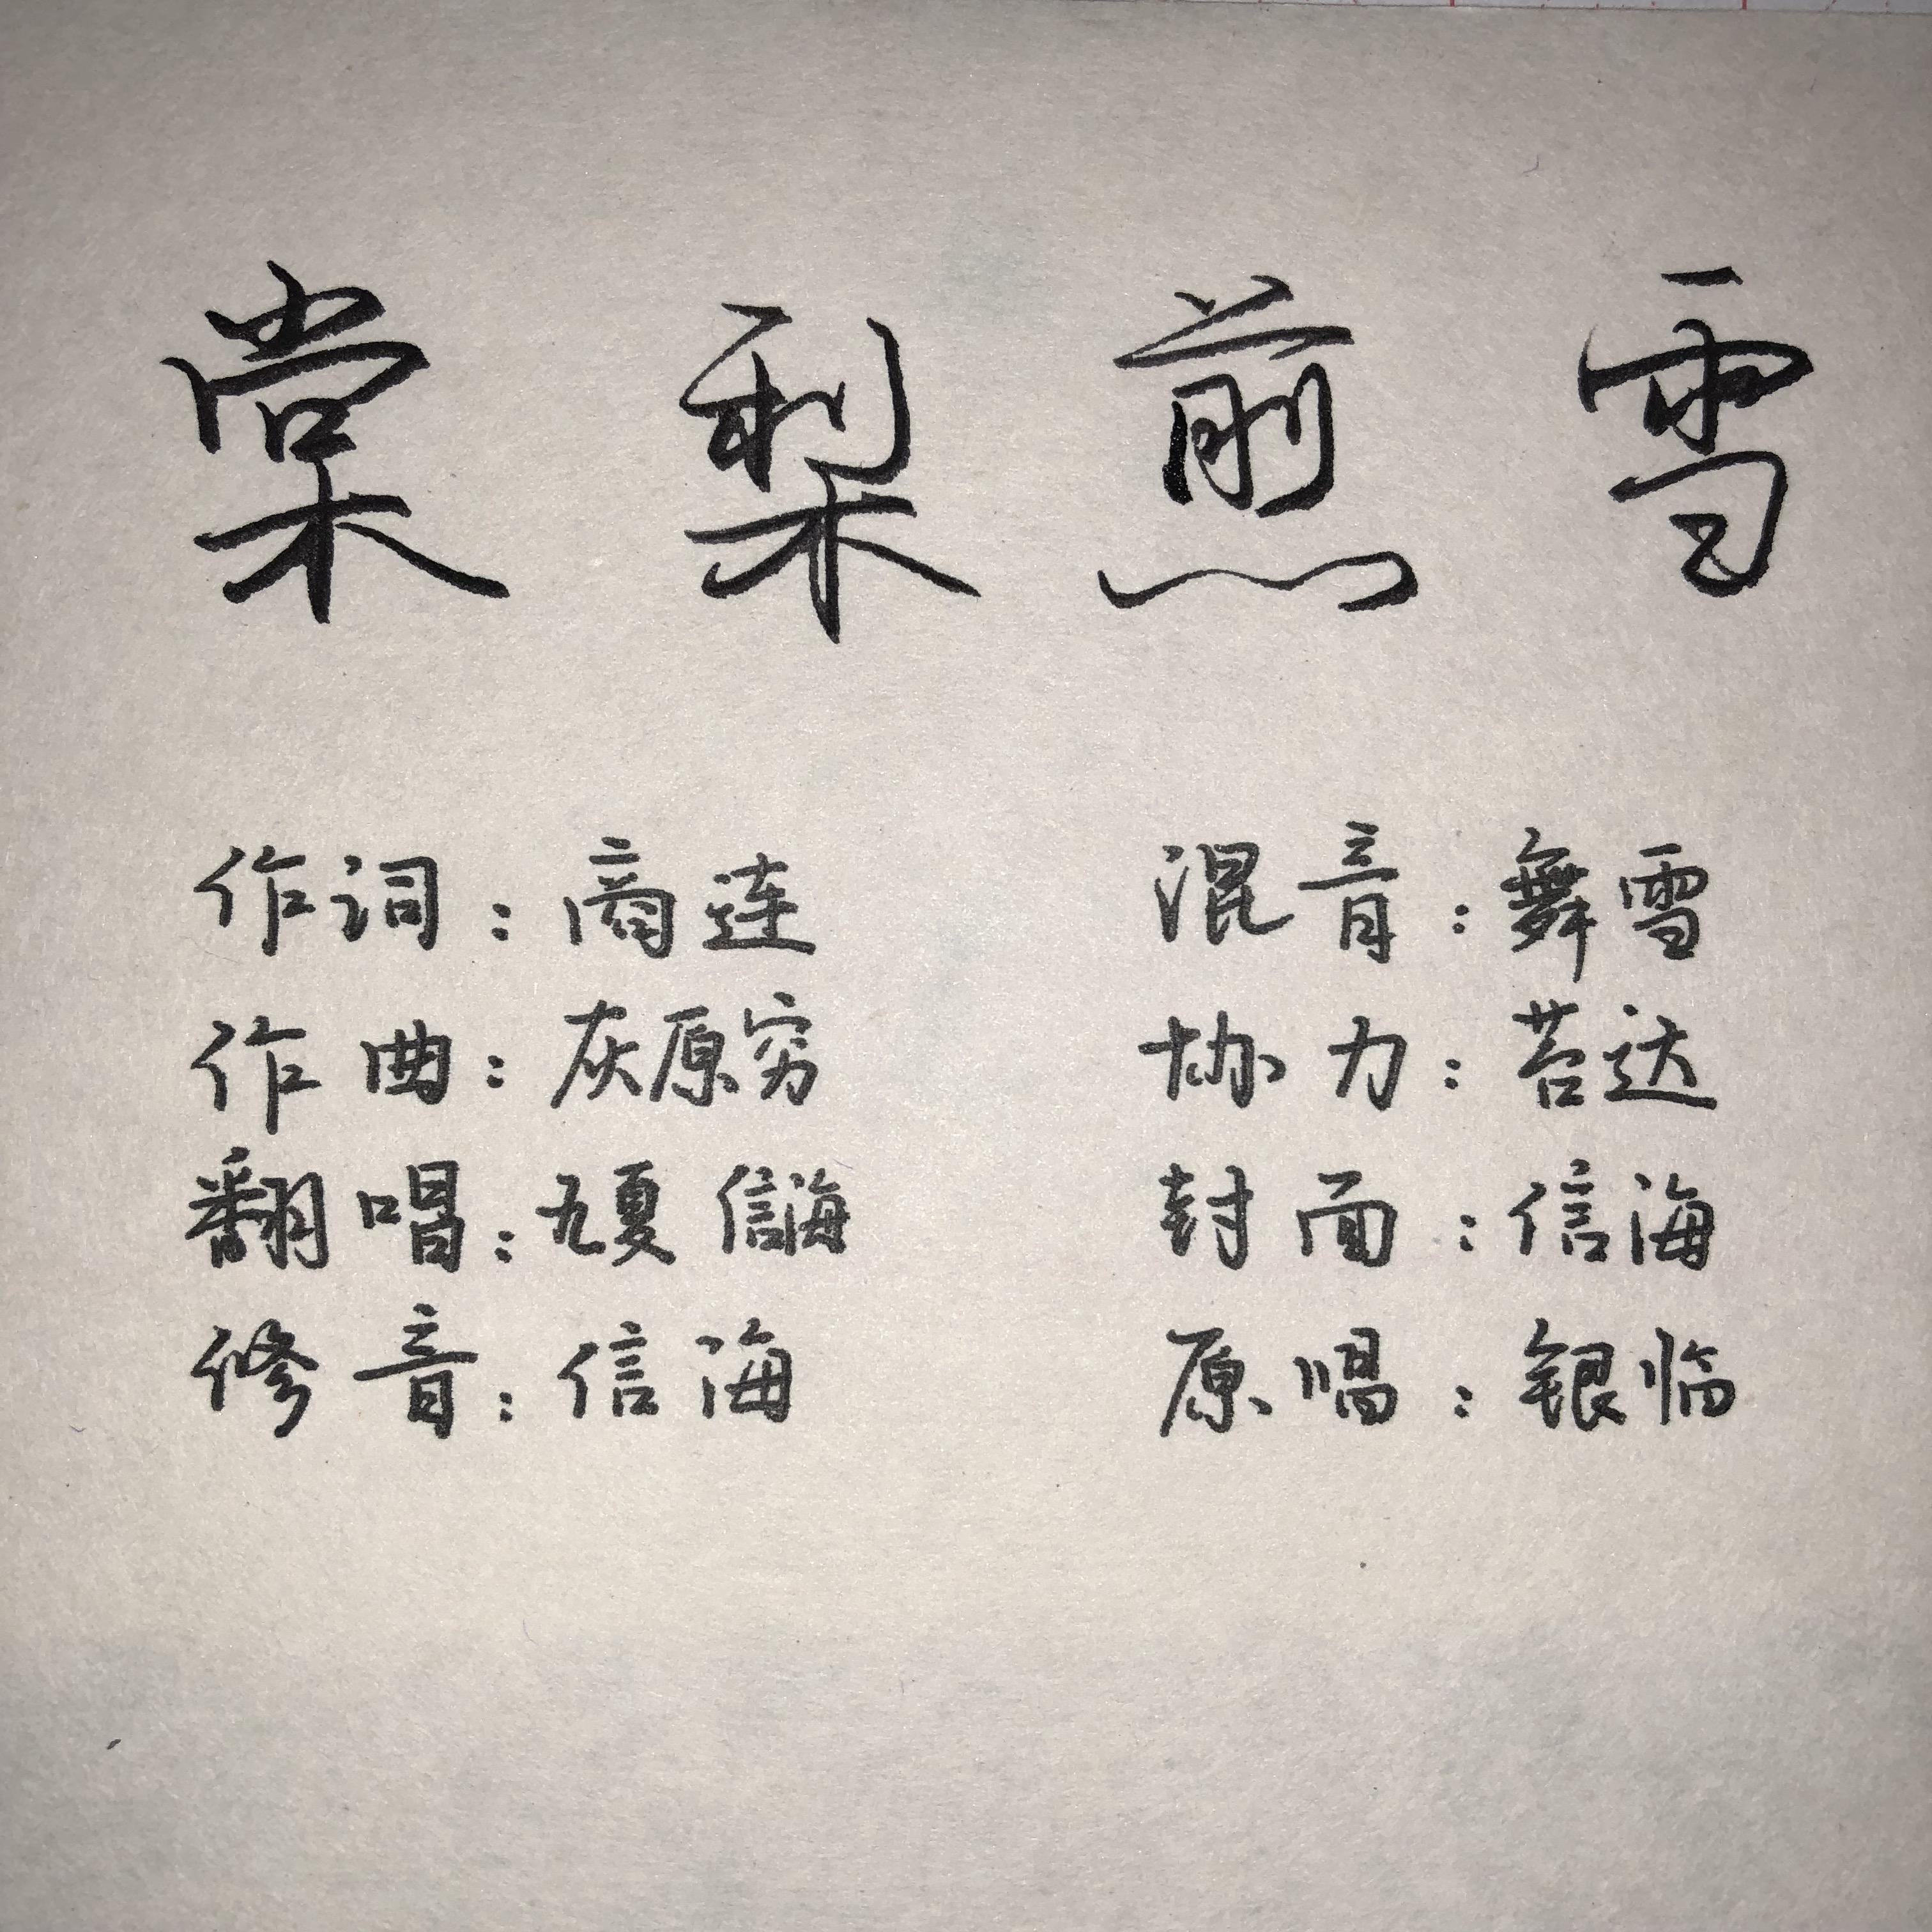 棠梨煎雪
作词：商连
作曲：灰原穷
翻唱：九夏 信海
修音：信海
混音：舞雪
协力：苔达
封面：信海
原唱：银临